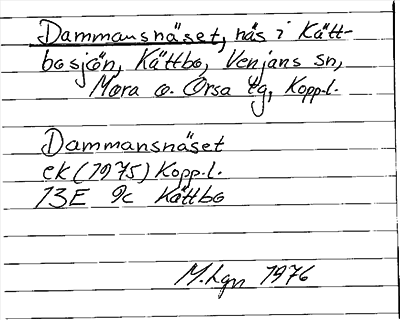 Dammansnäset, näs i Kätt-
bosjön, Kättbo, Venjans sn,
Mora o. Orsa tg, Kopp.l.
Dammansnäset
ek (1975) Kopp.l.
13E 9c Kättbo
M.Lgn 1976